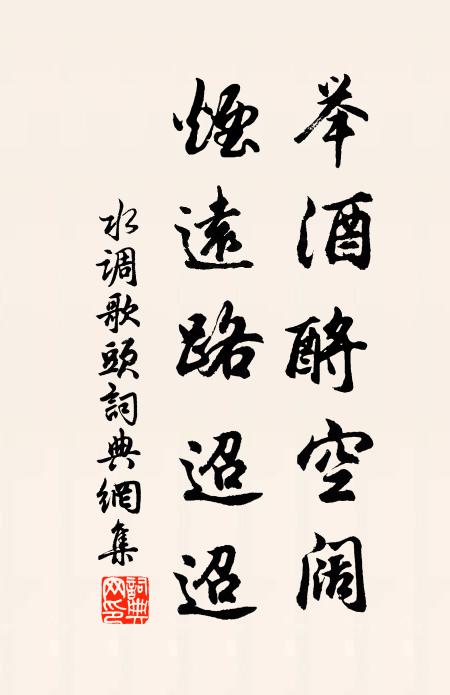 举酒酹空阔
煙遠路迢迢
水调歌頭詞典網集
詞典网印